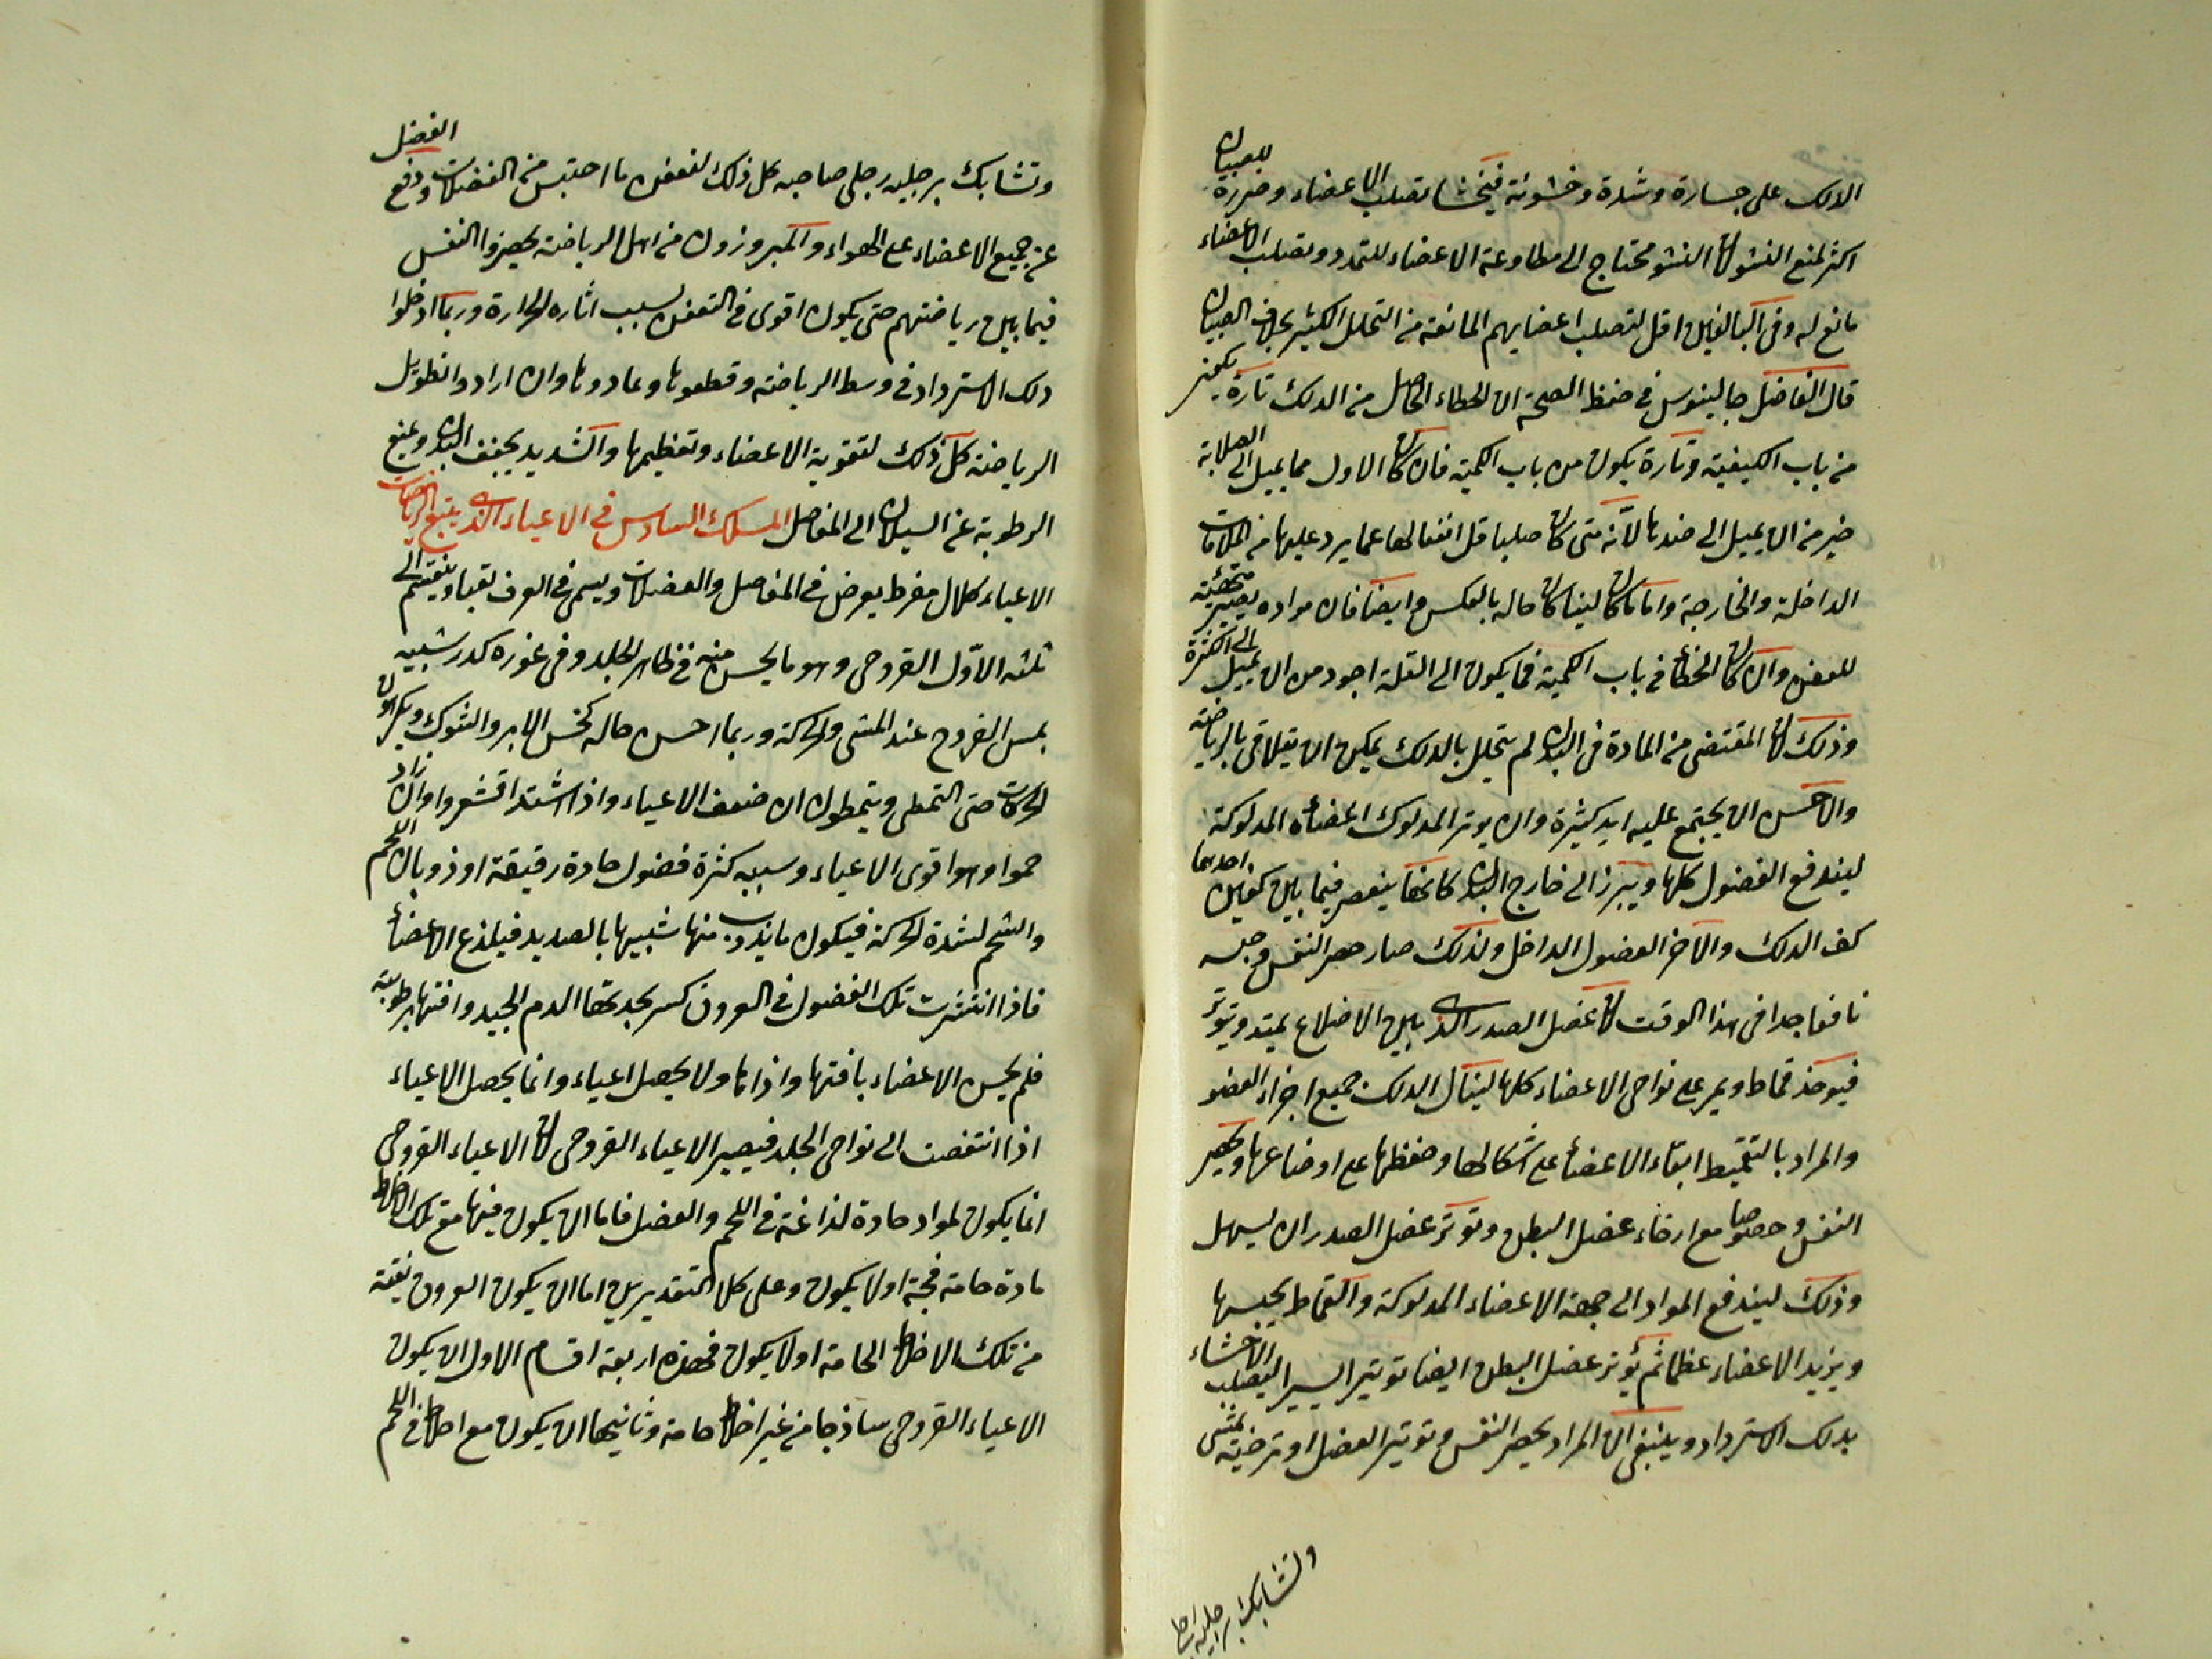 الدلك على جسارة وشدة وخشونة فيخشا تصلب الاعضاء وضرره للصبيان
اكثر لمنع النشو لان النشو محتاج الى مطاوعة الاعضاء للتمدد وتصلب الاعضاء
مانع له وفي البالغين اقل لتصلب اعضايهم المانعة من التحلل الكثير بخلاف الصبيان
قال الفاضل جالينوس في حفظ الصحة ان الخطاء الحاصل من الدلك تارة يكون
من باب الكيفية وتارة يكون من باب الكمية فان كان الاول مما يميل الى الصلابة
خير من ان يميل الى ضدها لانه متى كان صلبا قل انفعالها عما يرد عليها من الملاقات
الداخلة والخارجة واما ما كان لينا كان حاله بالعكس وايضا فان مواده يصير متهيئة
للعفن وان كان الخطأ في باب الكمية فما يكون الى القلة اجود من ان يميل الى الكثرة
وذلك لان المقتضى من المادة في البدن لم يتحلل بالدلك يمكن ان يتلاقى بالرياضة
والاحسن ان يجتمع عليه ايد كثيرة وان يوتر المدلوك اعضأه المدلوكة
ليندفع الفضول كلها ويبرز الى خارج البدن كانها ينعصر فيما بين كفين احدهما
كف الدلك والاخر العضول الداخل ولذلك صار حصر النفس وحبسه
نافعا جدا في هذا الوقت لان عضل الصدر الذى بين الاضلاع يمتد ويتوتر
فيوخذ قماط ويمر على نواحى الاعضاء كلها لينال الدلك جميع اجزاء العضو
والمراد بالتقميط ابقاء الاعضأ على اشكالها وحفظها على اوضاعها ويحصر
النفس وخصوصا مع ارخاء عضل البطن وتوتر عضل الصدر ان يسهل
وذلك ليندفع المواد الى جهة الاعضاء المدلوكة والقماط يحبسها
ويزيد الاعضاء عظما ثم يوتر عضل البطن ايضا توتير اليسير ليصلب الاحشاء
بدلك الاسترداد وينبغي ان المراد بحصر النفس وتوتير العضل او ترخيته يمشى
وتشابك برجليه رجلى صاحبه
وتشابك برجليه رجلى صاحبه كل ذلك لنفض ما احتبس من الفضلات ودفع الفضل
عن جميع الاعضاء على الهواء والمبروزون من اهل الرياضة يحصروا النفس
فيما بين رياضتهم حتى يكون اقوى في التنفس بسبب اثاره الحرارة وربما ادخلوا
دلك الاسترداد في وسط الرياضة وقطعوها وعادوها وان ارادوا تطويل
الرياضة كل ذلك لتقوية الاعضاء وتعظيمها والشديد يجفف البدن ويمنع
الرطوبة عن السيلان الى المفاصل المسلك السادس في الاعياء الذى يتبع الرياضات
الاعياء كلال مفرط يعرض في المفاصل والعضلات ويسمى في العرف تعبا وينقسم الى
ثلثه الاول القروحى وهو ما يحس منه في ظاهر الجلد وفي غوره كدر شبيه
بمس القروح عند المشى والحركة وربما احسن حاله كنخس الابر والشوك ويكرهون
الحركات حتى التمطى ويتمطون ان ضعف الاعياء واذا اشتد اقشعروا وان زاد
حموا وهو اقوى الاعياء وسببه كثرة فضول حادة رقيقة او ذوبان اللحم
والشحم لشدة الحركة فيكون ما يذوب منها شبيها بالصديد فيلذع الاعضأ
فاذا انتشرت تلك الفضول في العروق كسر بحدتها الدم الجيد وافتها برطوبته
فلم يحس الاعضاء بافتها واذاها ولا يحصل اعياء وانما يحصل الاعياء
اذا انتفضت الى نواحى الجلد فيصير الاعياء القروحى لان الاعياء القروحى
انما يكون لمواد حادة لذاغة في اللحم والعضل فاما ان يكون فيها مع تلك الاخلاط
مادة خامة فجة او لا يكون وعلى كل التقديرين اما ان يكون العروق نقية
من تلك الاخلاط الخامة او لا يكون فهذه اربعة اقسام الاول ان يكون
الاعياء القروحى ساذجا من غير اخلاط خامة وثانيها ان يكون مع اخلاط في اللحم